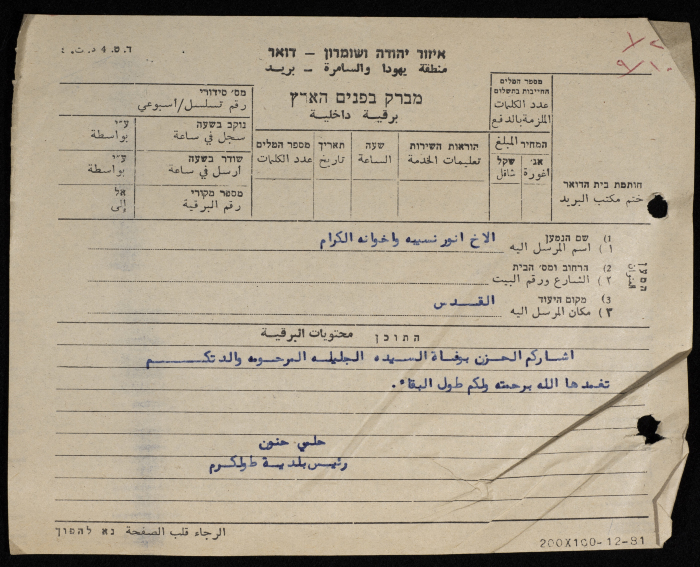 ד.ט. 4 ד.ת.
איזור יהודה ושומרון - דואר
منطقة يهودا والسامرة - بريد
מברק בפנים הארץ
برقية داخلية
מס' סידורי
رقم تسلسل/اسبوعي
נוקב בשעה
سجل في ساعة
ע״י
بواسطة
שודר בשעה
ارسل في ساعة
ע״י
بواسطة
מספר מקורי
رقم البرقية
אל
إلى
מספר המלים
عدد الكلمات
תאריך
تاريخ
שעה
الساعة
הוראות השירות
تعليمات الخدمة
מספר המלים
החייבות בתשלום
عدد الكلمات
الملزمة بالدفع
המחיר المبلغ
שקל
شاقل
אג'
اغورة
חותמת בית הדואר
ختم مكتب البريد
המען
العنوان
1) שם הנמען
١) اسم المرسل اليه الاخ انور نسيبه واخوانه الكرام
2) הרחוב ומס' הבית
٢) الشارع ورقم البيت
3) מקום היעוד
٣) مكان المرسل اليه القدس
התוכן محتويات البرقية
اشاركم الحزن بوفاة السيده الجليله المرحومه والدتكم
تغمدها الله برحمته ولكم طول البقاء.
حلمي حنون
رئيس بلدية طولكرم
الرجاء قلب الصفحة נא להפוך
200X100-12-81